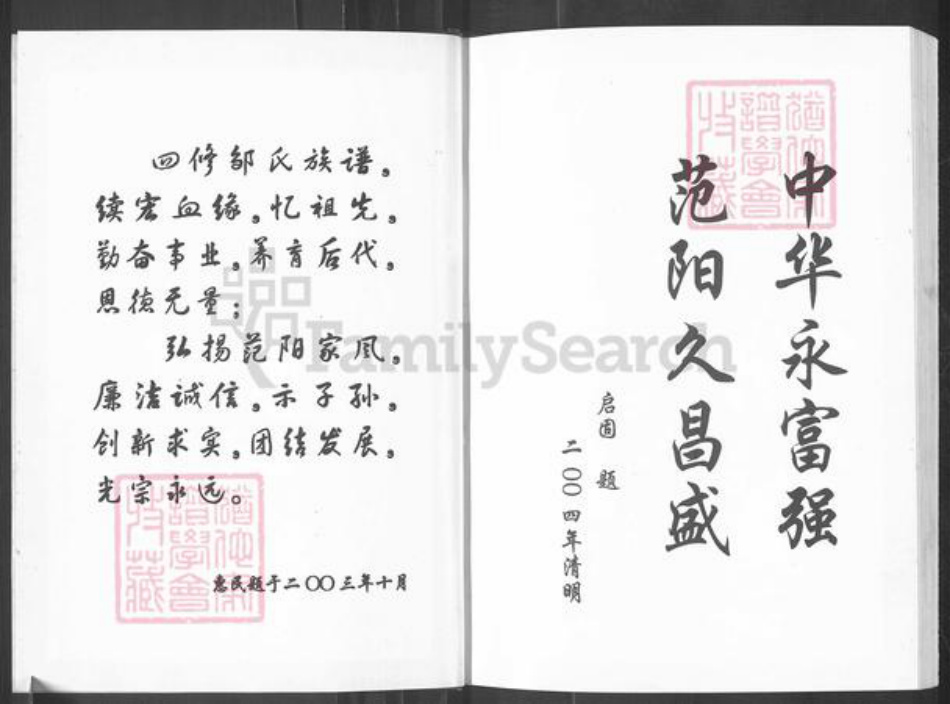 中华永富强
范阳久昌盛
启固 题
二〇〇四年清明
四修邹氏族谱。
续宏血缘。忆祖先。
勤奋事业。养育后代。
恩德无量；
弘扬范阳家风。
廉洁诚信。示子孙。
创新求实。团结发展。
光宗永远。
惠民题于二〇〇三年十月
譜學會
特藏
譜學會
特藏
FamilySearch